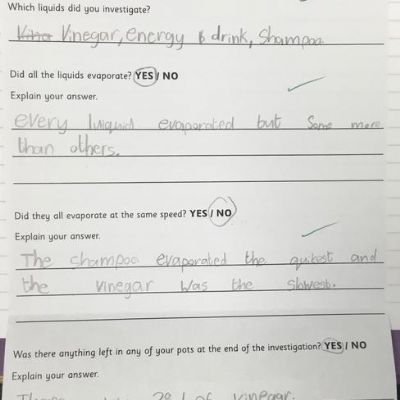 Which liquids did you investigate?
Vinegar, energy drink, Shampoo.
Did all the liquids evaporate? YES / NO
Explain your answer.
every liuquid evaporated but Some more
than others.
Did they all evaporate at the same speed? YES / NO
Explain your answer.
The shampoo evaporated the quikest and
the vinegar was the slowest.
Was there anything left in any of your pots at the end of the investigation? YES / NO
Explain your answer.
of vinegar.